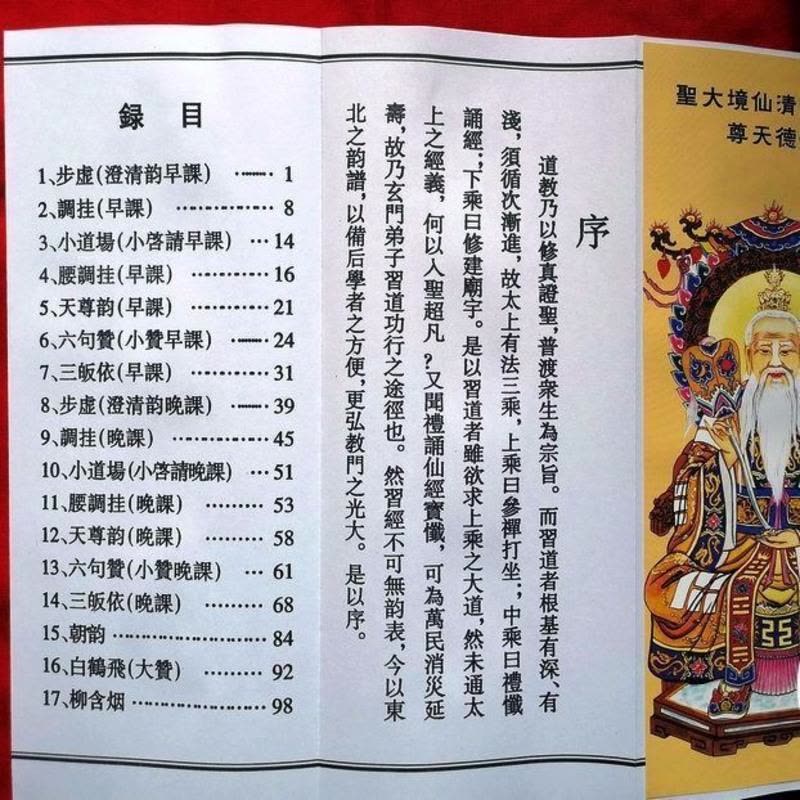 清仙境大聖
德天尊
序
道教乃以修真證聖，普渡衆生為宗旨。而習道者根基有深、有
淺，須循次漸進，故太上有法三乘，上乘曰參禪打坐；中乘曰禮懺
誦經；下乘曰修建廟宇。是以習道者雖欲求上乘之大道，然未通太
上之經義，何以人聖超凡？又聞禮誦仙經寶懺，可為萬民消災延
壽，故乃玄門弟子習道功行之途徑也。然習經不可無韵表，今以東
北之韵譜，以備后學者之方便，更弘教門之光大。是以序。
目録
1、步虛(澄清韵早課) ········ 1
2、調挂(早課) ················ 8
3、小道場(小啓請早課) ··· 14
4、腰調挂(早課) ············ 16
5、天尊韵(早課) ············ 21
6、六句贊(小贊早課) ········ 24
7、三皈依(早課) ············ 31
8、步虛(澄清韵晚課) ········ 39
9、調挂(晚課) ················ 45
10、小道場(小啓請晚課) ··· 51
11、腰調挂(晚課) ········· 53
12、天尊韵(晚課) ········· 58
13、六句贊(小贊晚課) ··· 61
14、三皈依(晚課) ········· 68
15、朝韵 ························ 84
16、白鶴飛(大贊) ········· 92
17、柳含烟 ····················· 98